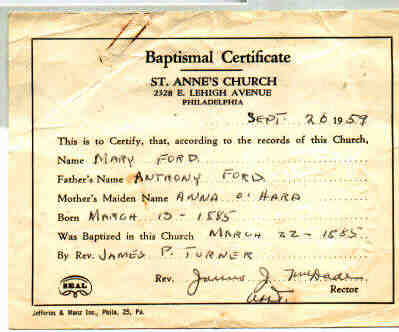 Baptismal Certificate
ST. ANNE'S CHURCH
2328 E. LEHIGH AVENUE
PHILADELPHIA
SEPT. 26 1959
This is to Certify, that, according to the records of this Church,
Name MARY FORD
Father's Name ANTHONY FORD
Mother's Maiden Name ANNA O'HARA
Born MARCH 15 - 1885
Was Baptized in this Church MARCH 22 - 1885
By Rev. JAMES P. TURNER
Rev. James J. McDade
SEAL
Asst. Rector
Jefferies & Manz Inc., Phila. 25, Pa.